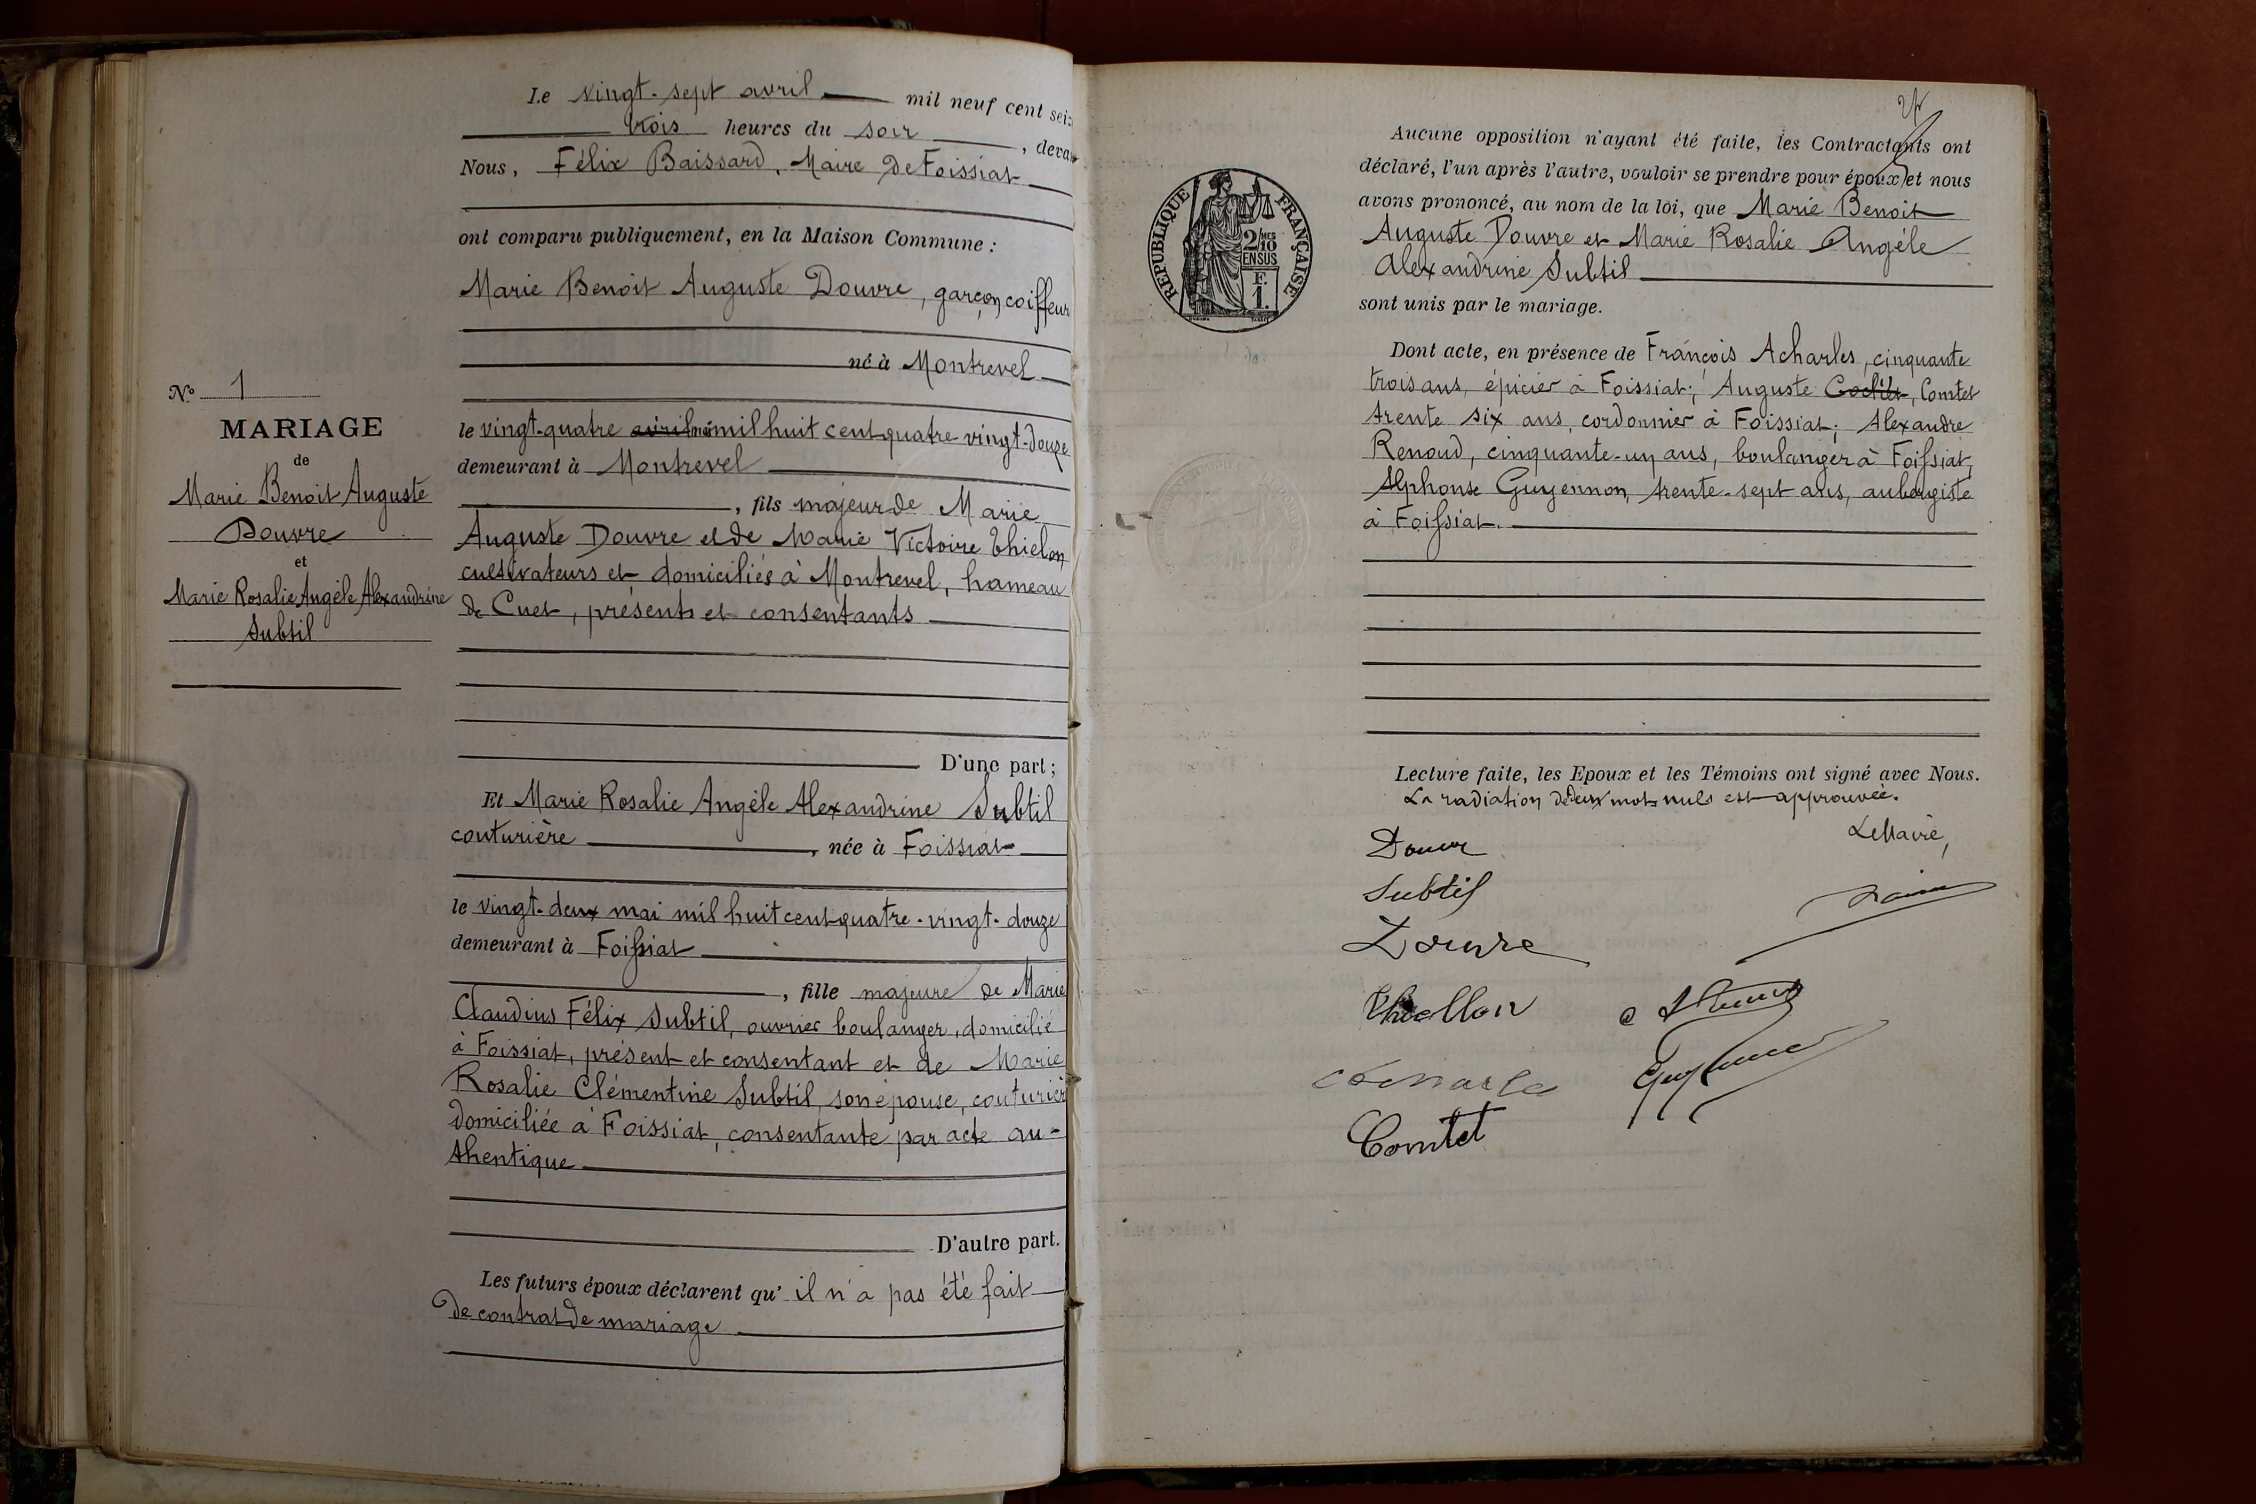 Le vingt-sept avril mil neuf cent seiz
trois heures du soir, devan
Nous, Félix Baissard, Maire de Foissiat
ont comparu publiquement, en la Maison Commune :
Marie Benoit Auguste Douvre, garçon coiffeur
né à Montrevel
le vingt-quatre avril mil huit cent quatre vingt-douze
demeurant à Montrevel
, fils majeur de Marie
Auguste Douvre et de Marie Victoire Thielon
cultivateurs et domiciliés à Montrevel, hameau
de Cuet, présents et consentants
D'une part ;
Et Marie Rosalie Angèle Alexandrine Subtil
couturière, née à Foissiat
le vingt-deux mai mil huit cent quatre-vingt-douze
demeurant à Foissiat
, fille majeure de Marie
Claudius Félix Subtil, ouvrier boulanger, domicilié
à Foissiat, présent et consentant et de Marie
Rosalie Clémentine Subtil, son épouse, couturièr
domiciliée à Foissiat, consentante par acte au-
thentique
D'autre part.
Les futurs époux déclarent qu' il n'a pas été fait
de contrat de mariage
N° 1
MARIAGE
de
Marie Benoit Auguste
Douvre
et
Marie Rosalie Angèle Alexandrine
Subtil
RÉPUBLIQUE FRANÇAISE
2/10 MES
EN SUS
F.
1.
Aucune opposition n'ayant été faite, les Contractants ont
déclaré, l'un après l'autre, vouloir se prendre pour époux, et nous
avons prononcé, au nom de la loi, que Marie Benoit
Auguste Douvre et Marie Rosalie Angèle
Alexandrine Subtil
sont unis par le mariage.
Dont acte, en présence de François Acharles, cinquante
trois ans, épicier à Foissiat ; Auguste Comtet
trente six ans, cordonnier à Foissiat ; Alexandre
Renoud, cinquante-un ans, boulanger à Foissiat,
Alphonse Guyennon, trente-sept ans, aubergiste
à Foissiat.
Lecture faite, les Epoux et les Témoins ont signé avec Nous.
La radiation de deux mots nuls est approuvée.
Le Maire,
Douvre
Subtil
Douvre
Thiellon
Comtet